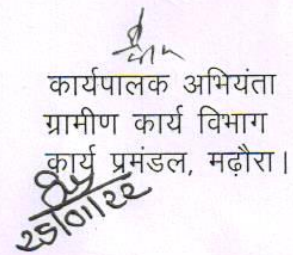 कार्यपालक अभियंता
ग्रामीण कार्य विभाग
कार्य प्रमंडल, मढ़ौरा।
25/01/22